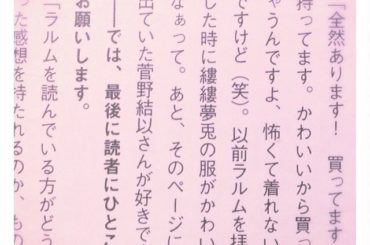 「全然あります！　買ってます
持ってます。かわいいから買っ
ゃうんですよ、怖くて着れない
ですけど（笑）。以前ラルムを拝
した時に縷縷夢兎の服がかわい
なぁって。あと、そのページに
出ていた菅野結以さんが好きで
――では、最後に読者にひとこ
お願いします。
「ラルムを読んでいる方がどう
った感想を持たれるのか、もの